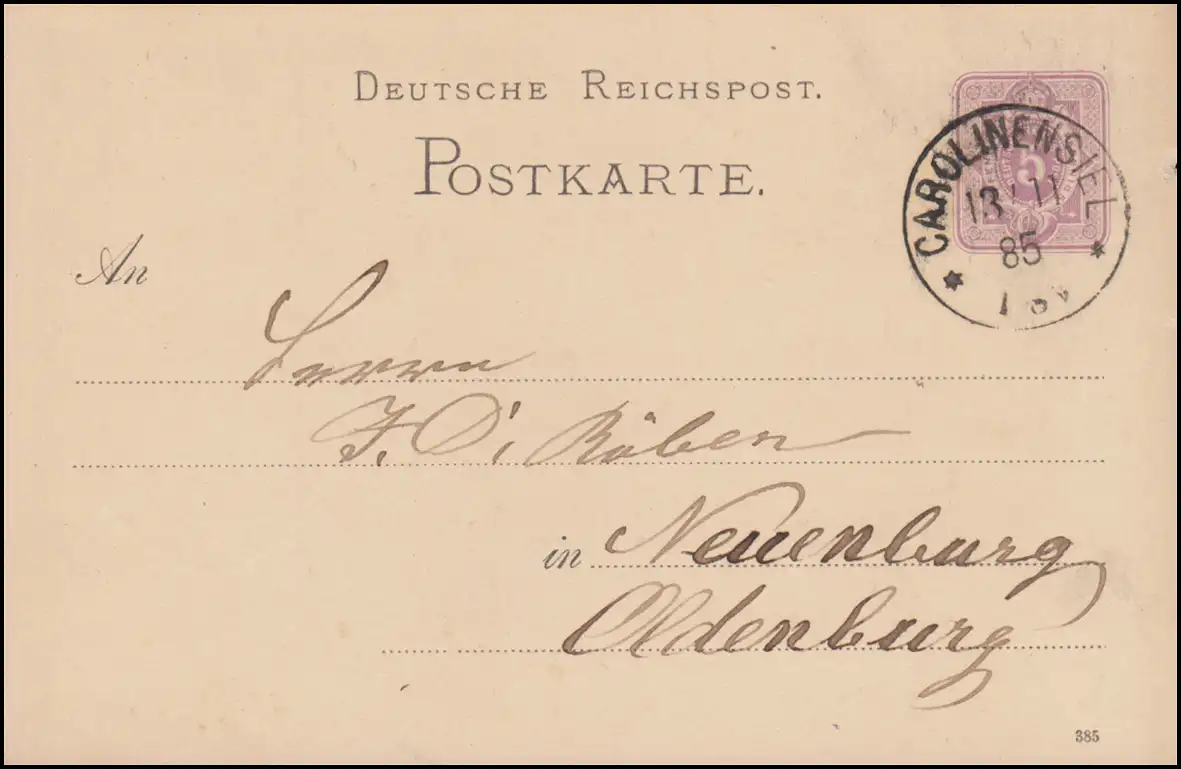 DEUTSCHE REICHSPOST.
POSTKARTE.
5
CAROLINENSIEL
13 11
85
An
Herrn
J. D. Röben
in Neuenburg
Oldenburg
385